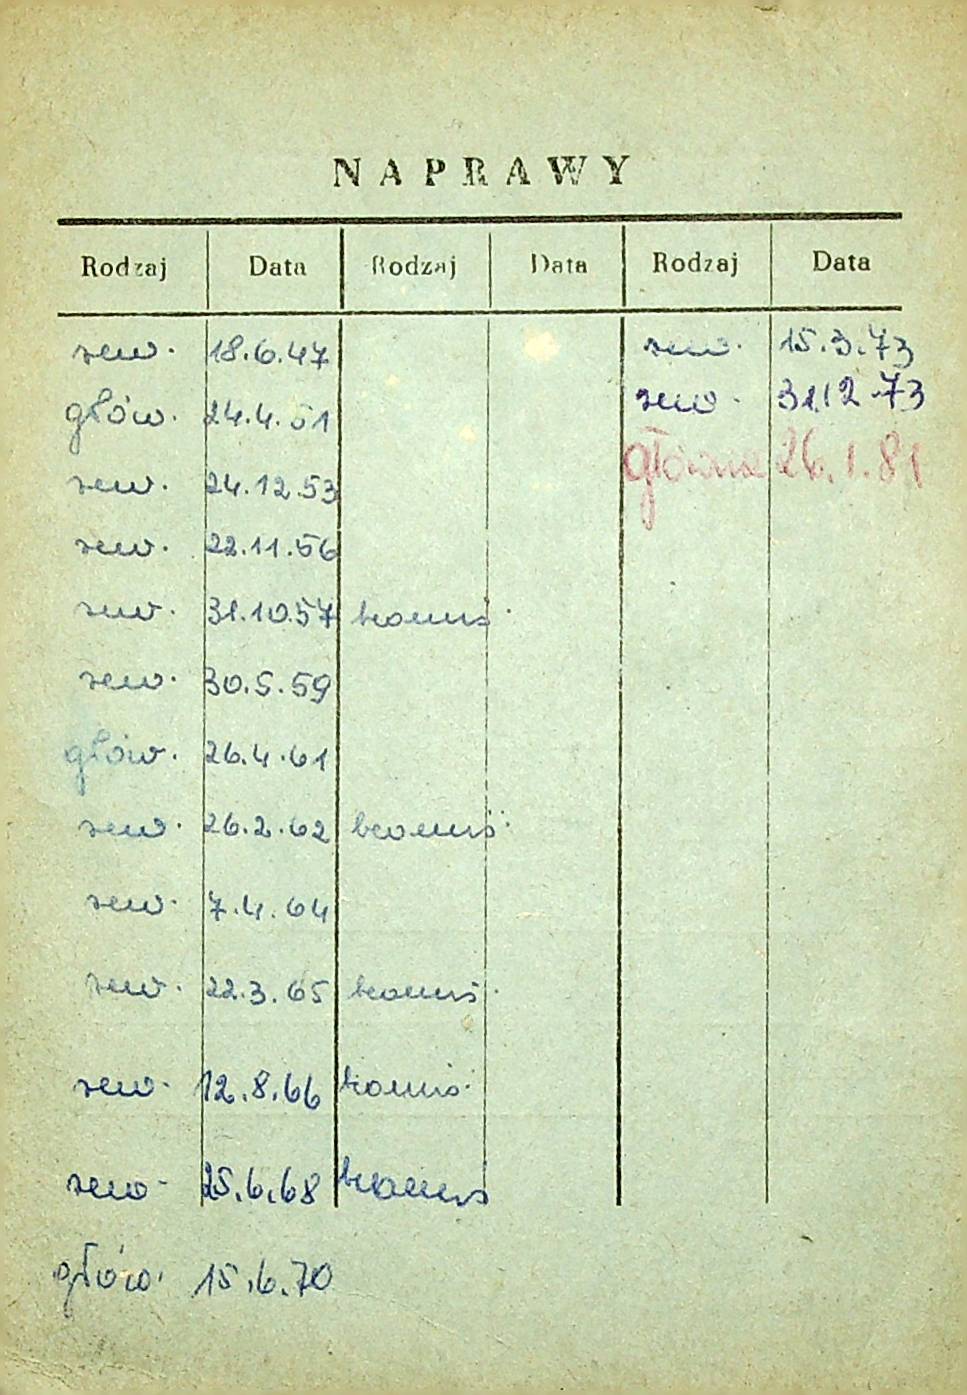 NAPRAWY
Rodzaj Data Rodzaj Data Rodzaj Data
rew. 18.6.47 rew. 15.3.73
głów. 24.4.51 rew. 31.12.73
główna 26.1.81
rew. 24.12.53
rew. 22.11.56
rew. 31.10.57
rew. 30.5.59
głów. 26.4.61
rew. 26.2.62
rew. 7.4.64
rew. 22.3.65
rew. 12.8.66
rew. 25.6.68
głów. 15.6.70